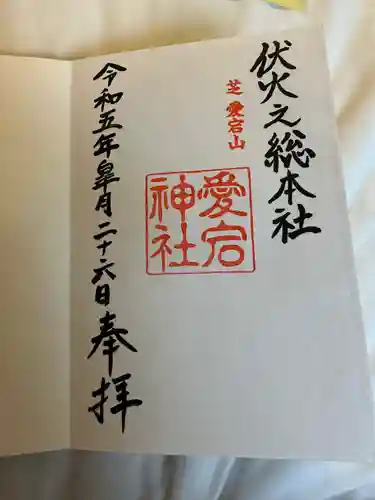 伏火之総本社
芝 愛宕山
愛宕
神社
令和五年皐月二十六日
奉拝